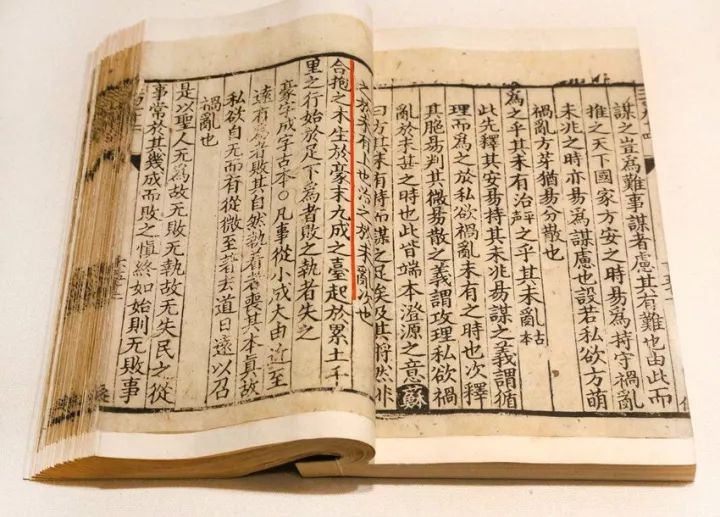 謀之豈為難事謀者慮其有難也由此而
推之天下國家方安之時易為持守禍亂
未兆之時亦易為謀慮也設若私欲方萌
禍亂方芽猶易分散也
為之乎其未有治乎其未亂古本
此先釋其安易持其未兆易謀之義謂循
理而為之於私欲禍亂未有之時也次釋
其脆易判其微易散之義謂攻理私欲禍
亂於未甚之時也此皆端本澄源之意蘇
曰方其未有持而謀之足矣及其將然非
之於未有也治之於未亂次也
合抱之木生於豪末九成之臺起於累土千
里之行始於足下為者敗之執者失之
豪字成字古本○凡事從小成大由近至
遠有為者敗其自然執者喪其本真故
私欲自无而有從微至著去道日遠以召
禍亂也
是以聖人无為故无敗无執故无失民之從
事常於其幾成而敗之慎終如始則无敗事